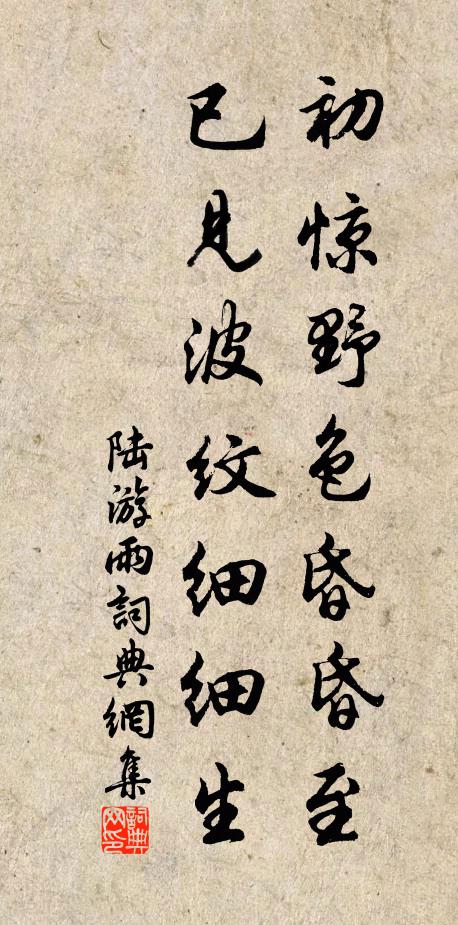 初惊野色昏昏至
已见波纹细细生
陆游雨詞典網集
詞典網印